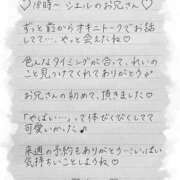 ♡18時〜 シエルのお兄さん♡
ずっと前からオキニトークでお話
してて…、やっと会えたね♡
色んなタイミングが合って、れいの
こと見つけてくれてありがとう
お兄さんの初めて、頂きました♡
「やばい…」って体びくびくしてて
可愛いかった♪
来週の予約もありがとう…!いっぱい
気持ちいことしようね